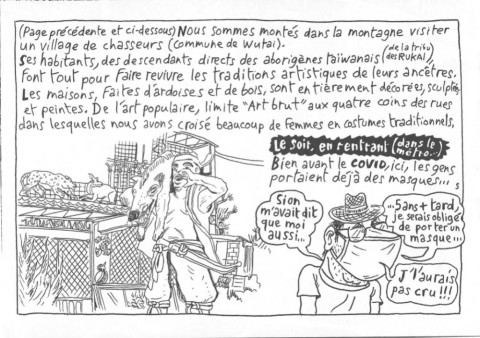 (Page précédente et ci-dessous) Nous sommes montés dans la montagne visiter
un village de chasseurs (commune de Wutai).
Ses habitants, des descendants directs des aborigènes taïwanais (de la tribu des RUKAI),
Font tout pour faire revivre les traditions artistiques de leurs ancêtres.
Les maisons, faites d'ardoises et de bois, sont entièrement décorées, sculptées
et peintes. De l'art populaire, limite "Art brut" aux quatre coins des rues
dans lesquelles nous avons croisé beaucoup de femmes en costumes traditionnels.
Le soir, en rentrant (dans le métro..)
Bien avant le COVID, ici, les gens
portaient déjà des masques...
Si on
m'avait dit
que moi
aussi...
...5 ans + tard,
je serais obligé
de porter un
masque...
J'l'aurais
pas cru !!!